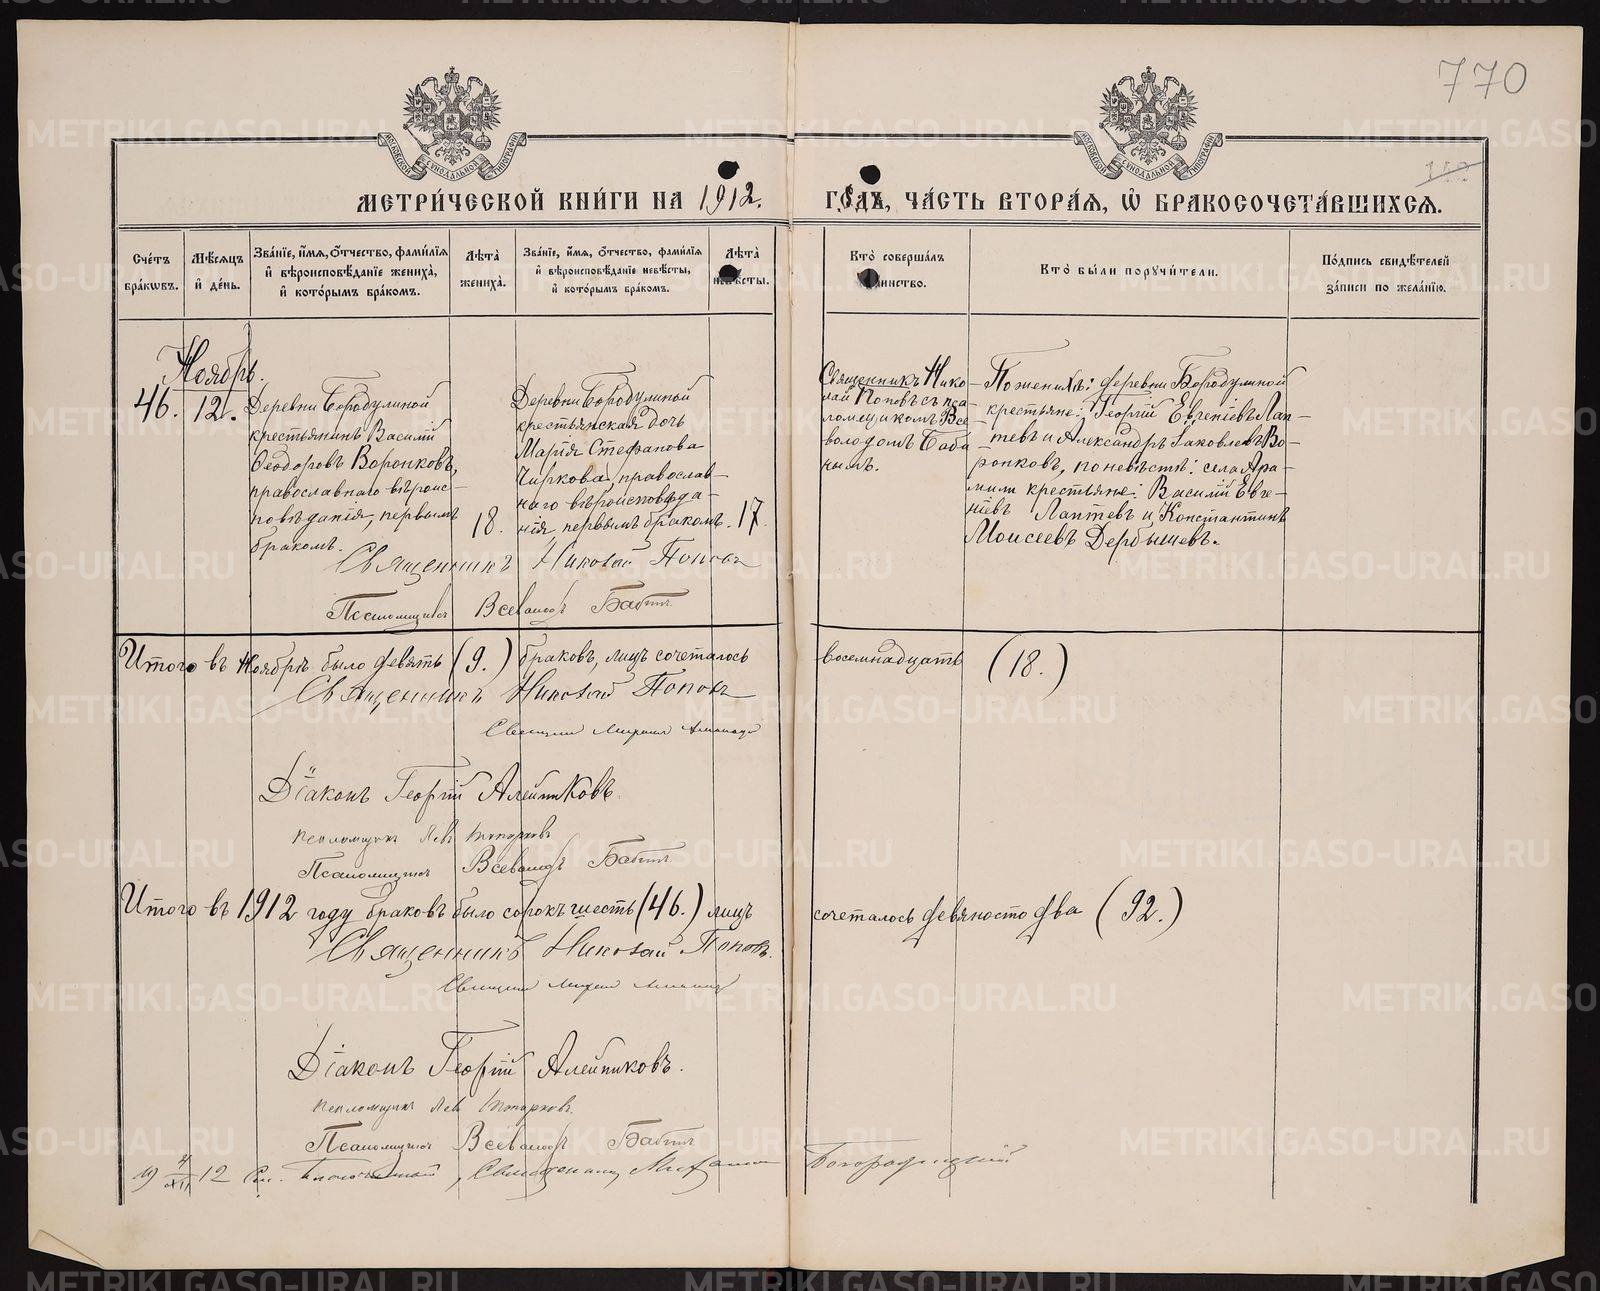 770
МОСКОВСКОЙ СУНОДАЛЬНОЙ ТИПОГРАФІИ
МОСКОВСКОЙ СУНОДАЛЬНОЙ ТИПОГРАФІИ
МЕТРИ́ЧЕСКОЙ КНИ́ГИ НА 1912. ГОДЪ, ЧА́СТЬ ВТОРА́Я, Ѡ БРАКОСОЧЕТА́ВШИХСЯ.
Сче́тъ бра́кѡвъ.
Мѣ́сяцъ и҆ де́нь.
Зва́нїе, и҆́мя, ѻ҆́тчество, фами́лїя и҆ вѣроисповѣ́данїе жениха̀, и҆ кото́рымъ бра́комъ.
Лѣ́та жениха̀.
Зва́нїе, и҆́мя, ѻ҆́тчество, фами́лїя и҆ вѣроисповѣ́данїе невѣ́сты, и҆ кото́рымъ бра́комъ.
Лѣ́та невѣ́сты.
Кто̀ соверша́лъ таинство.
Кто̀ бы́ли поручи́тели.
По́дпись свидѣ́телей за́писи по жела́нїю.
Ноябрь.
46.
12.
Деревни Бородулиной
крестьянинъ Василій
Ѳеодоровъ Воронковъ,
православнаго вѣроис-
повѣданія, первымъ
бракомъ.
18.
Деревни Бородулиной
крестьянская дочь
Марія Стефанова
Чиркова, православ-
наго вѣроисповѣда-
нія, первымъ бракомъ.
17.
Священникъ Нико-
лай Поповъ съ пса-
ломщикомъ Все-
володомъ Баби-
нымъ.
По женихѣ: деревни Бородулиной
крестьяне: Георгій Евгеніевъ Лап-
тевъ и Александръ Іаковлевъ Во-
ронковъ, по невѣстѣ: села Ара-
мили крестьяне: Василій Евге-
ніевъ Лаптевъ и Константинъ
Моисеевъ Дербышевъ.
Священникъ Николай Поповъ
Псаломщикъ Всеволодъ Бабинъ
Итого въ Ноябрѣ было девять (9.) браковъ, лицъ сочеталось восемнадцать (18.)
Священникъ Николай Поповъ
Діаконъ Георгій Алейниковъ.
Псаломщикъ Левъ Топорковъ
Псаломщикъ Всеволодъ Бабинъ
Итого въ 1912 году браковъ было сорокъ шесть (46.) лицъ сочеталось девяносто два (92.)
Священникъ Николай Поповъ.
Діаконъ Георгій Алейниковъ.
Псаломщикъ Левъ Топорковъ.
Псаломщикъ Всеволодъ Бабинъ
19 XII 12 Благочинный, Священникъ Михаилъ Богородицкій
METRIKI.GASO-URAL.RU